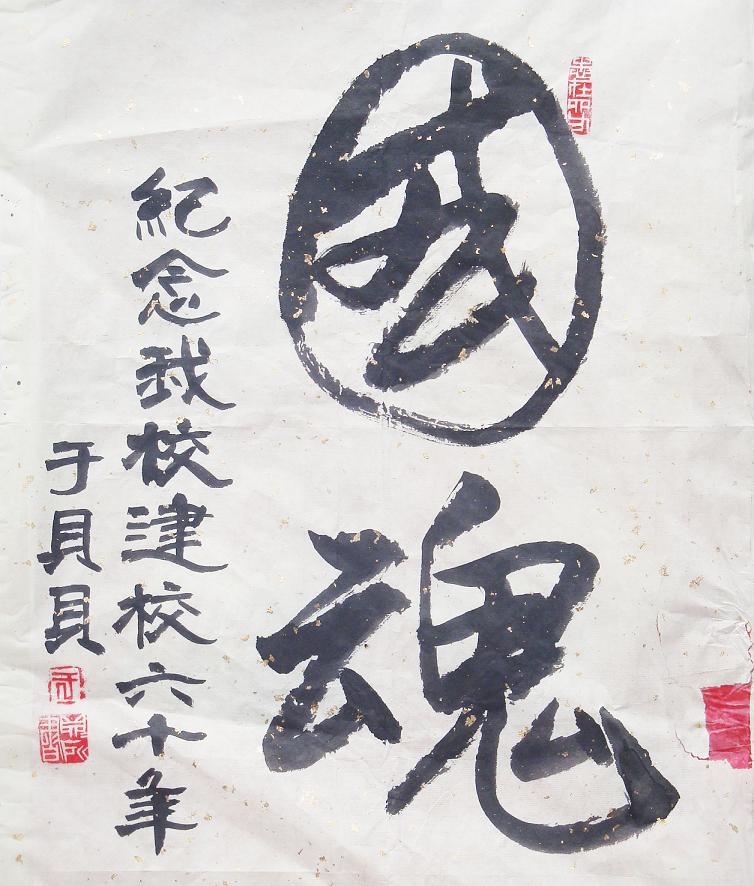 國魂
紀念我校建校六十年
于貝貝